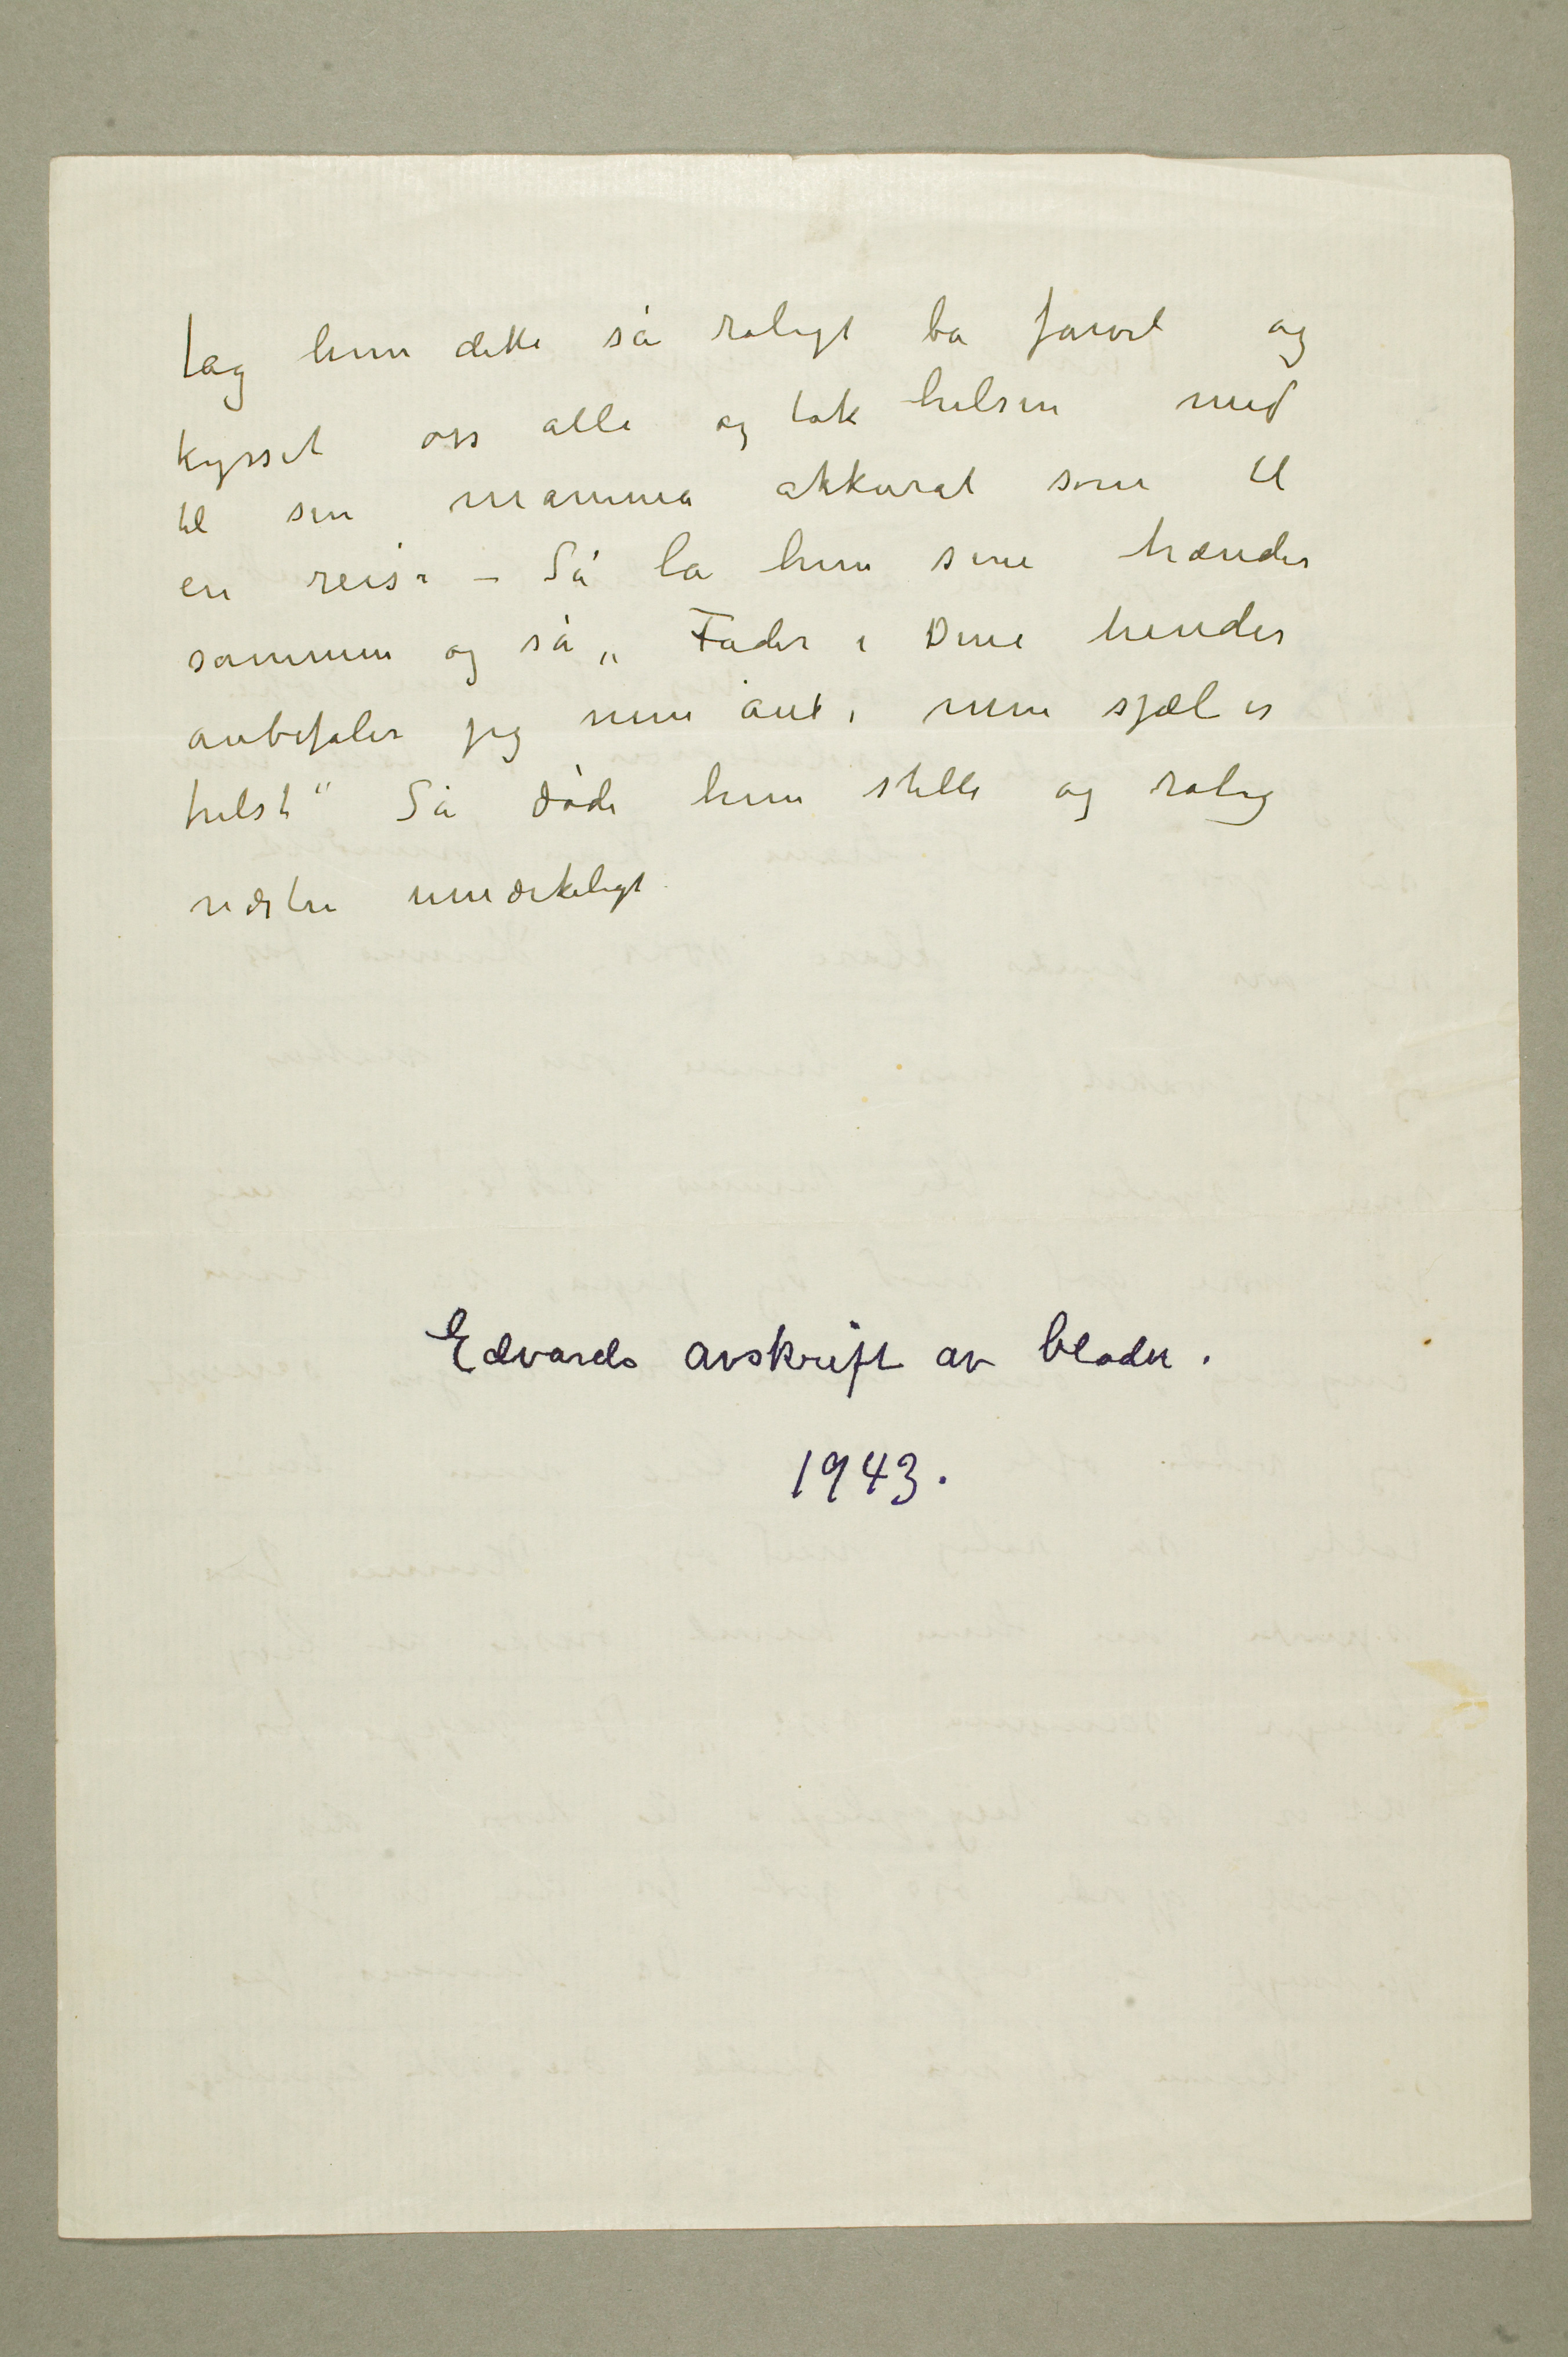 tog hun dette så roligt ba farvel og
kysset oss alle og tok hilsen med
til sin mamma akkurat som til
en reise – Så la hun sine hænder
sammen og så „ Fader i Dine hender
anbefaler jeg min ånd, min sjæl er
frelst" Så døde hun stille og rolig
næsten umærkeligt
Edvards avskrift av bladet.
1943.